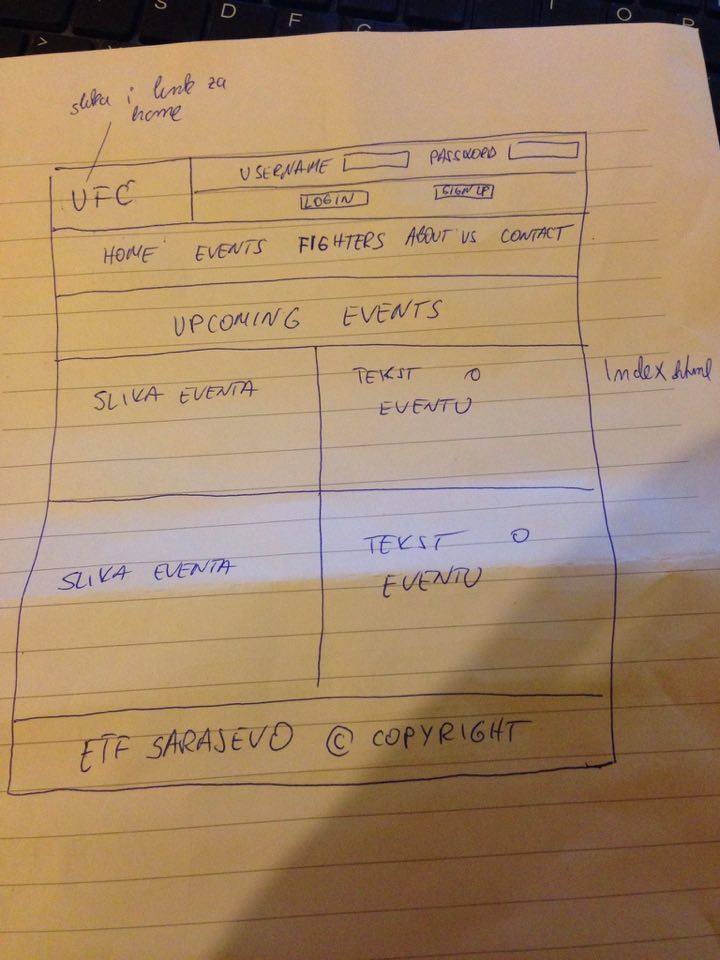 S D F O P
slika i link za
home
UFC
USERNAME PASSWORD
LOGIN SIGN UP
HOME EVENTS FIGHTERS ABOUT US CONTACT
UPCOMING EVENTS
SLIKA EVENTA
TEKST O
EVENTU
Index.html
SLIKA EVENTA
TEKST O
EVENTU
ETF SARAJEVO © COPYRIGHT